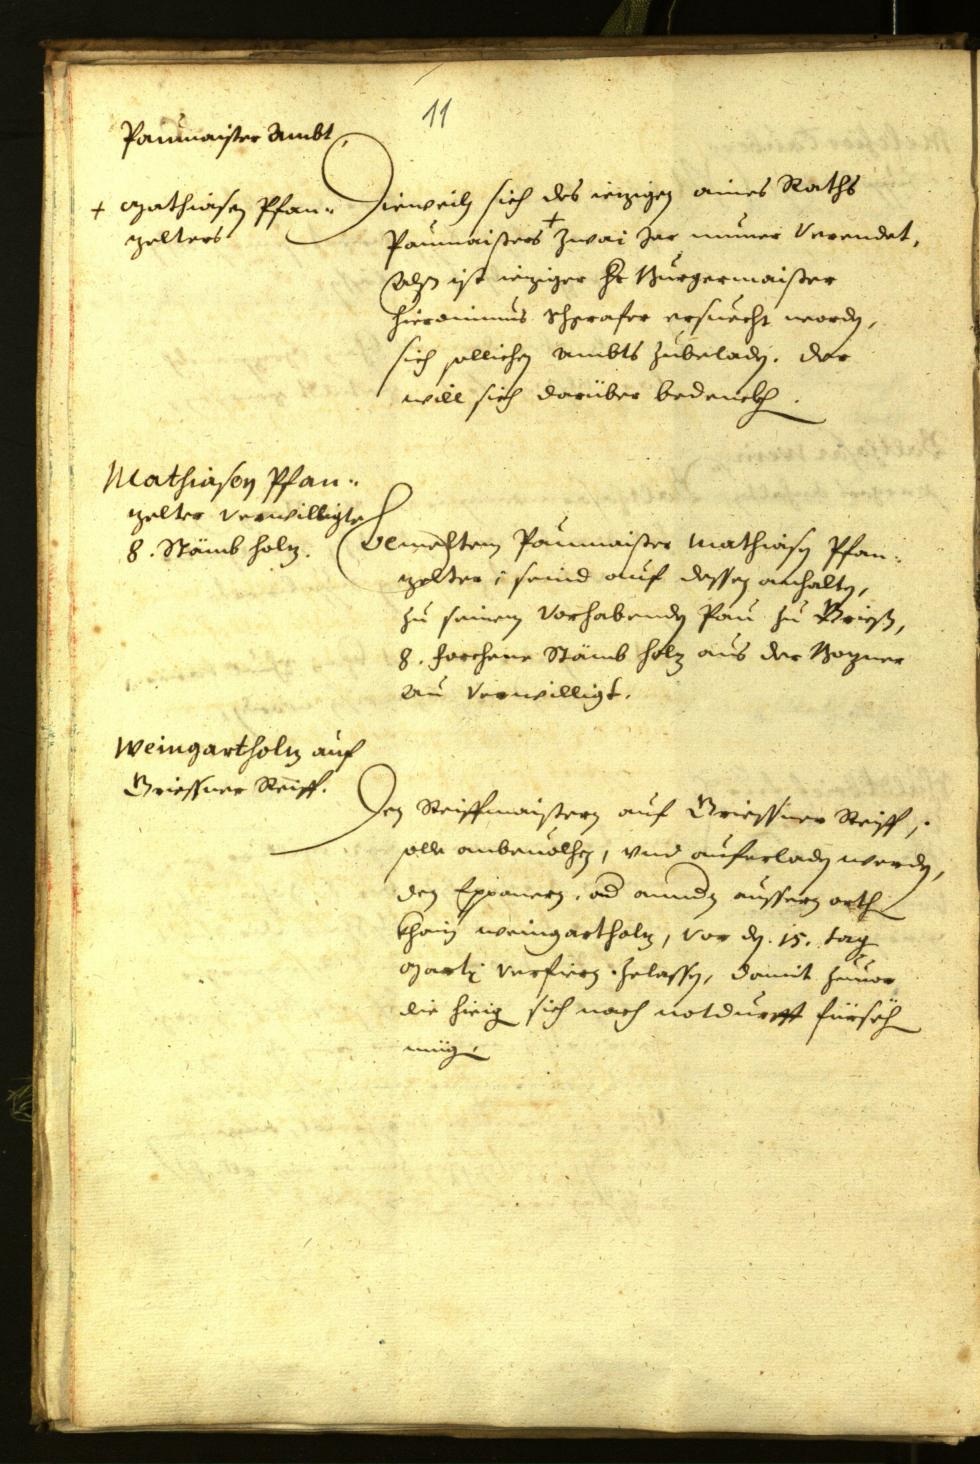 11
Paumaister Ambt
+ Mathiasen Pfan-
zelters
Dieweiln sich des iezigen aines Raths
Paumaisters + zwai Jar nuner Verendet,
Alß ist ieziger Hr Burgermaister
Hieronimus ersuecht worden,
sich sollichen Ambts zubeladen. der
will sich darüber bedenckhen.
Mathiasen Pfan-
zelter verwilligte
8. Stämb holz.
Bemeltem Paumaister Mathiasen Pfan-
zelter, seind auf dessen anhalten,
zu seinem Vorhabenden Pau zu Grieß,
8. forchene Stämb holz aus der Bozner
Au Verwilligt.
Weingartholz auf
Griessner Reiff.
Den Reiffmaistern auf Griessner Reiff,
solle anbeuolhen, vnd auferladen werden,
den Eppanern, od anndn aussern orth
khain weingartholz, vor dn. 15. tag
Martj verfiern zelassen, damit zuuor
die hieig sich nach notdurfft fürsehen
mügen.